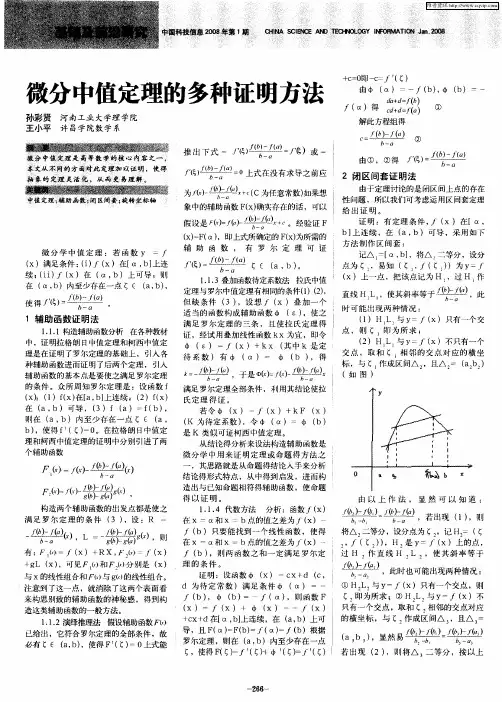 维普资讯 http://www.cqvip.com
中国科技信息 2008 年第 1 期 CHINA SCIENCE AND TECHNOLOGY INFORMATION Jan.2008
微分中值定理的多种证明方法
孙彩贤 河南工业大学理学院
王小平 许昌学院数学系
微分中值定理是高等数学的核心内容之一，
本文从不同的方面对此定理加以证明，使得
抽象的定理灵活化，从而更易理解。
中值定理；辅助函数；闭区间套；旋转坐标轴
微分中学定理：若函数 y = f
(x) 满足条件：(i) f (x) 在 [α,b] 上连
续；(ii) f (x) 在 (α,b) 上可导；则
在 (α,b) 内至少存在一点 ζ∈ (α,b)，
使得 f'(ζ)= f(b)-f(a) / b-a 。
1 辅助函数证明法
1.1.1 构造辅助函数分析 在各种教材
中，证明拉格朗日中值定理和柯西中值定
理是在证明了罗尔定理的基础上，引入各
种辅助函数进而证明了后两个定理，引入
辅助函数的基本点是要使之满足罗尔定理
的条件。众所周知罗尔定理是：设函数 f
(x)；(1) f(x) 在[α,b]上连续；(2) f(x)
在 (α,b) 可导，(3) f (a) = f(b)，
则在 (α,b) 内至少存在一点 ζ∈ (α,
b)，使得 f'(ζ)=0。在拉格朗日中值定
理和柯西中值定理的证明中分别引进了两
个辅助函数
F₁(x) = f(x)- f(b)-f(a) / b-a (x)
F₂(x)=f(x)- f(b)-f(a) / g(b)-g(a) g(x) ，
构造两个辅助函数的出发点都是使之
满足罗尔定理的条件 (3)，设：R =
- f(b)-f(a) / b-a (x)，L = - f(b)-f(a) / g(b)-g(a) (x)，则
有：F₁(x) = f (x) +RX, F₂(x) = f (x)
+gL (x)，可见 F₁(x) 和 F₂(x) 分别是 (x)
与 x 的线性组合和 F(x) 与 g(x) 的线性组合。
注意到了这一点，就消除了这两个表面看
来构思别致的辅助函数的神秘感，得到构
造这类辅助函数的一般方法。
1.1.2 演绎推理法 假设辅助函数 F(x)
已给出，它符合罗尔定理的全部条件，故
必有 ζ∈ (α,b)，使得 F'(ζ)=0 上式能
推出下式 - f'(ζ) f(b)-f(a) / b-a = f'(ζ) 或 -
f'(ζ) f(b)-f(a) / b-a =0 上式在没有求导之前应
为 f(x)- f(b)-f(a) / b-a x+c (C 为任意常数)如果想
象中的辅助函数 F(x)确实存在的话，可以
假设是 F(x)=f(x)- f(b)-f(a) / b-a x+c 。经验证 F
(x)=F(α)，即上式所确定的 F(x)为所需的
辅助函数，有罗尔定理可证
f'(ζ)= f(b)-f(a) / b-a ζ∈ (α,b)。
1.1.3 叠加函数待定系数法 拉氏中值
定理与罗尔中值定理有相同的条件(1) (2)，
但缺条件 (3)，设想 f (x) 叠加一个
适当的函数构成辅助函数 φ (ε)，使之
满足罗尔定理的三条，且使拉氏定理得
证，经试用叠加线性函数 kx 为宜，即令
φ (ε) = f (x) +kx (其中 k 是定
待系数) 有 φ (α) = φ (b)，得
k=- f(b)-f(a) / b-a ，于是 Φ(x)= f(x)- f(b)-f(a) / b-a x
满足罗尔定理全部条件，利用其结论使拉
氏定理得证。
若令 φ (x) = f (x) +kF (x)
(K 为待定系数)，令 φ (α) = φ (b)
是 K 类似可证柯西中值定理。
从结论得分析来设法构造辅助函数是
微分学中用来明定理或命题得方法之
一，其思路就是从命题得结论入手来分析
结论得形式特点，从中得到启发，进而构
造出与已知命题相符得辅助函数，使命题
得以证明。
1.1.4 代数方法 分析：函数 f(x)
在 x = α 和 x = b 点的值之差为 f(α) -
f (b) 只要能找到一个线性函数，使得
在 x = α 和 x = b 点的值之差为 f(α) -
f (b)，则两函数之和一定满足罗尔定
理的条件。
证明：设函数 φ (x) = cx+d (c,
d 为待定常数) 满足条件 φ (α) = -
f(b)，φ(b) = - f(α)，则函数 F
(x) = f(x) + φ (x) = - f (x)
+cx+d 在[α,b]上连续，在(α,b)上可
导，且 F(α)=F(b)=f(α)-f(b) 根据
罗尔定理，则在 (α,b) 内至少存在一点
ζ，使得 F(ζ)=f'(ζ)+φ'(ζ)=f'(ζ)
+c=0即-c= f'(ζ)
由 φ (α) = -f(b)，φ (b) = -
f (α) 得 da+d=f(b) cd+d=f(a) ①
解此方程组得
c= f(b)-f(a) / b-a ②
由①、②得 f'(ζ)= f(b)-f(a) / b-a
2 闭区间套证明法
由于定理讨论的是闭区间上点的存在
性问题，所以我们可考虑运用区间套定理
给出证明。
证明：有定理条件，f (x) 在[α,
b]上连续，在 (a,b) 可导，采用如下
方法制作区间套：
记△₁=[a₁,b]，将△₁二等分，设分
点为 ζ₁，易知 (ζ₁, f (ζ₁)) 为 y= f
(x) 上一点，把该点记为 H₁，过 H₁作
直线 H₁L₁，使其斜率等于 f(b)-f(a) / b-a ，此
时可能出现两种情况：
(1) H₁L₁与 y=f (x) 只有一个交
点，则 ζ₁即为所求；
(2) H₁L₁与 y=f (x) 不只有一个
交点，取和 ζ₁ 相邻的交点对应的横坐
标，与 ζ₁作成区间△₂，且△₂= (a₂b₂)
(如图)
y
0 a b x
由以上作法，显然可以知道：
f(b₂)-f(b₁) / b₂-b₁ = f(b)-f(a) / b-a ，若出现 (1)，则
将△₂二等分，设分点为 ζ₂ 记 H₂= (ζ
₂, f (ζ₂))，H₂是 y= f (x) 上的点，
过 H₂作直线 H₂L₂，使其斜率等于
f(b₂)-f(a₂) / b₂-a₂ ，此时也可能出现两种情况：
①H₂L₂与 y=f (x) 只有一个交点，则
ζ₂即为所求；②H₂L₂与 y=f (x) 不
只有一个交点，取和 ζ₂相邻的交点对应
的横坐标，与 ζ₂作成区间△₃，且△₃=
(a₃b₃)，显然易 f(b₃)-f(b₂) / b₃-b₂ = f(b₂)-f(a₂) / b₂-a₂
若出现 (2)，则将△₃二等分，按以上
-266-